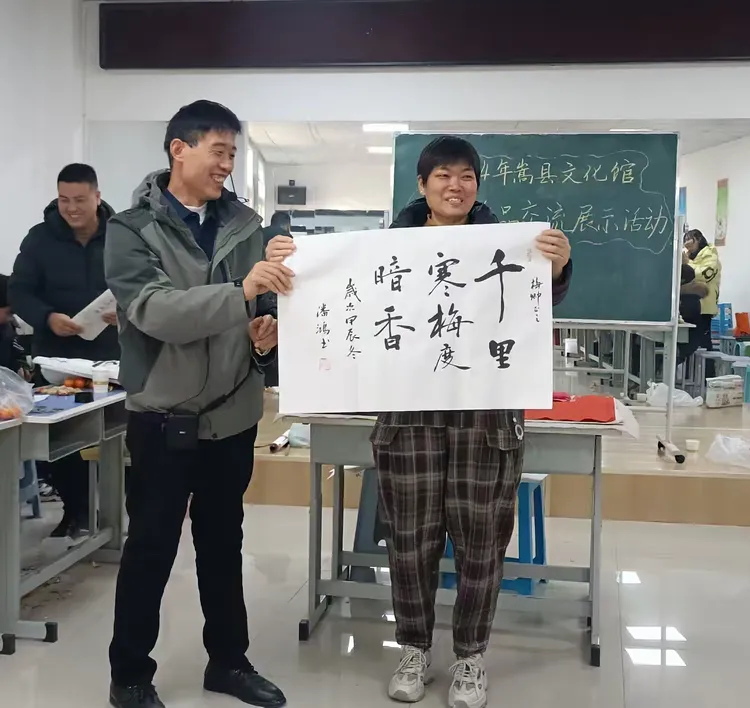 4年嵩县文化馆
品交流展示活动
千里
寒梅度
暗香
歲次甲辰冬
潘鸿书